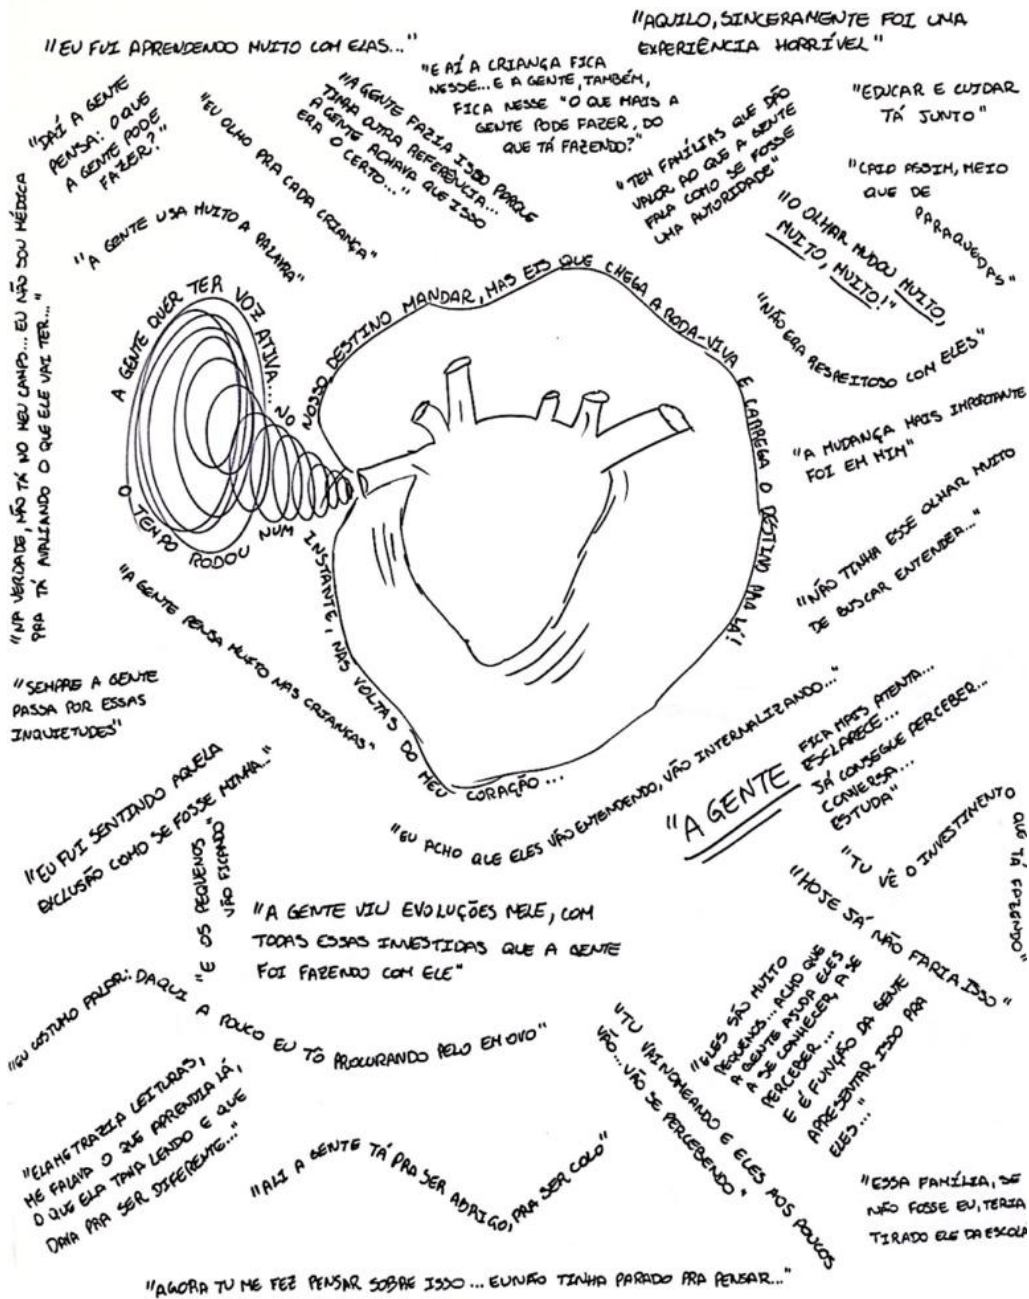 "EU FUI APRENDENDO MUITO COM ELAS..."
"AQUILO, SINCERAMENTE FOI UMA
EXPERIÊNCIA HORRÍVEL"
"DAÍ A GENTE
PENSA: O QUE
A GENTE PODE
FAZER?"
"EU OLHO PRA CADA CRIANÇA"
"A GENTE FAZIA ISSO PORQUE
TINHA OUTRA REFERÊNCIA...
A GENTE ACHAVA QUE ISSO
ERA O CERTO..."
"E AÍ A CRIANÇA FICA
NESSE... E A GENTE, TAMBÉM,
FICA NESSE "O QUE MAIS A
GENTE PODE FAZER, DO
QUE TÁ FAZENDO?"
"TEM FAMÍLIAS QUE DÃO
VALOR AO QUE A GENTE
FALA COMO SE FOSSE
UMA AUTORIDADE"
"EDUCAR E CUIDAR
TÁ JUNTO"
"CAIO ASSIM, MEIO
QUE DE
PARAQUEDAS"
"O OLHAR MUDOU MUITO,
MUITO, MUITO!"
"NÃO ERA RESPEITOSO COM ELES"
"NA VERDADE, NÃO TÁ NO MEU CAMPO... EU NÃO SOU MÉDICA
PRA TÁ AVALIANDO O QUE ELE VAI TER..."
"A GENTE USA MUITO A PALAVRA"
A GENTE QUER TER VOZ ATIVA... NO NOSSO DESTINO MANDAR, MAS EIS QUE CHEGA A RODA-VIVA E CARREGA O DESTINO PRA LÁ!
O TEMPO RODOU NUM INSTANTE, NAS VOLTAS DO MEU CORAÇÃO...
"A MUDANÇA MAIS IMPORTANTE
FOI EM MIM"
"NÃO TINHA ESSE OLHAR MUITO
DE BUSCAR ENTENDER..."
"A GENTE PENSA MUITO NAS CRIANÇAS"
"SEMPRE A GENTE
PASSA POR ESSAS
INQUIETUDES"
"EU FUI SENTINDO AQUELA
EXCLUSÃO COMO SE FOSSE MINHA..."
"E OS PEQUENOS
VÃO FICANDO"
"EU ACHO QUE ELES VÃO ENTENDENDO, VÃO INTERNALIZANDO..."
"A GENTE
FICA MAIS ATENTA...
ESCLARECE...
JÁ CONSEGUE PERCEBER...
CONVERSA...
ESTUDA"
"TU VÊ O INVESTIMENTO
QUE TÁ FAZENDO"
"HOJE JÁ NÃO FARIA ISSO"
"A GENTE VIU EVOLUÇÕES NELE, COM
TODAS ESSAS INVESTIDAS QUE A GENTE
FOI FAZENDO COM ELE"
"EU COSTUMO FALAR: DAQUI A POUCO EU TÔ PROCURANDO PELO EM OVO"
"ELES SÃO MUITO
PEQUENOS... ACHO QUE
A GENTE AJUDA ELES
A SE CONHECER, A SE
PERCEBER...
E É FUNÇÃO DA GENTE
APRESENTAR ISSO PRA
ELES..."
"TU VAI NOMEANDO E ELES AOS POUCOS
VÃO... VÃO SE PERCEBENDO"
"ELA ME TRAZIA LEITURAS,
ME FALAVA O QUE APRENDIA LÁ,
O QUE ELA TAVA LENDO E QUE
DAVA PRA SER DIFERENTE..."
"ALI A GENTE TÁ PRA SER ABRIGO, PRA SER COLO"
"ESSA FAMÍLIA, SE
NÃO FOSSE EU, TERIA
TIRADO ELE DA ESCOLA
"AGORA TU ME FEZ PENSAR SOBRE ISSO... EU NÃO TINHA PARADO PRA PENSAR..."